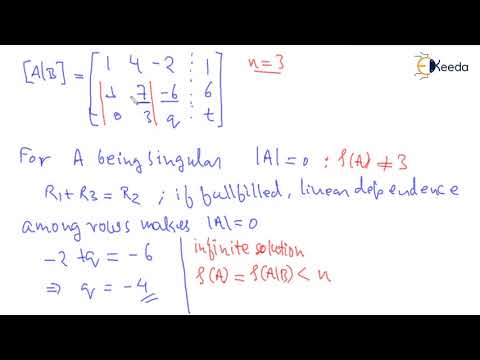 [A|B] = [ 1 4 -2 : 1
1 7 -6 : 6
0 3 q : t ]
n = 3
Ekeeda
For A being singular |A| = 0 ; ρ(A) ≠ 3
R₁ + R₃ = R₂ ; if fullfilled, linear dependence
among rows makes |A| = 0
-2 + q = -6
⇒ q = -4
infinite solution
ρ(A) = ρ(A|B) < n